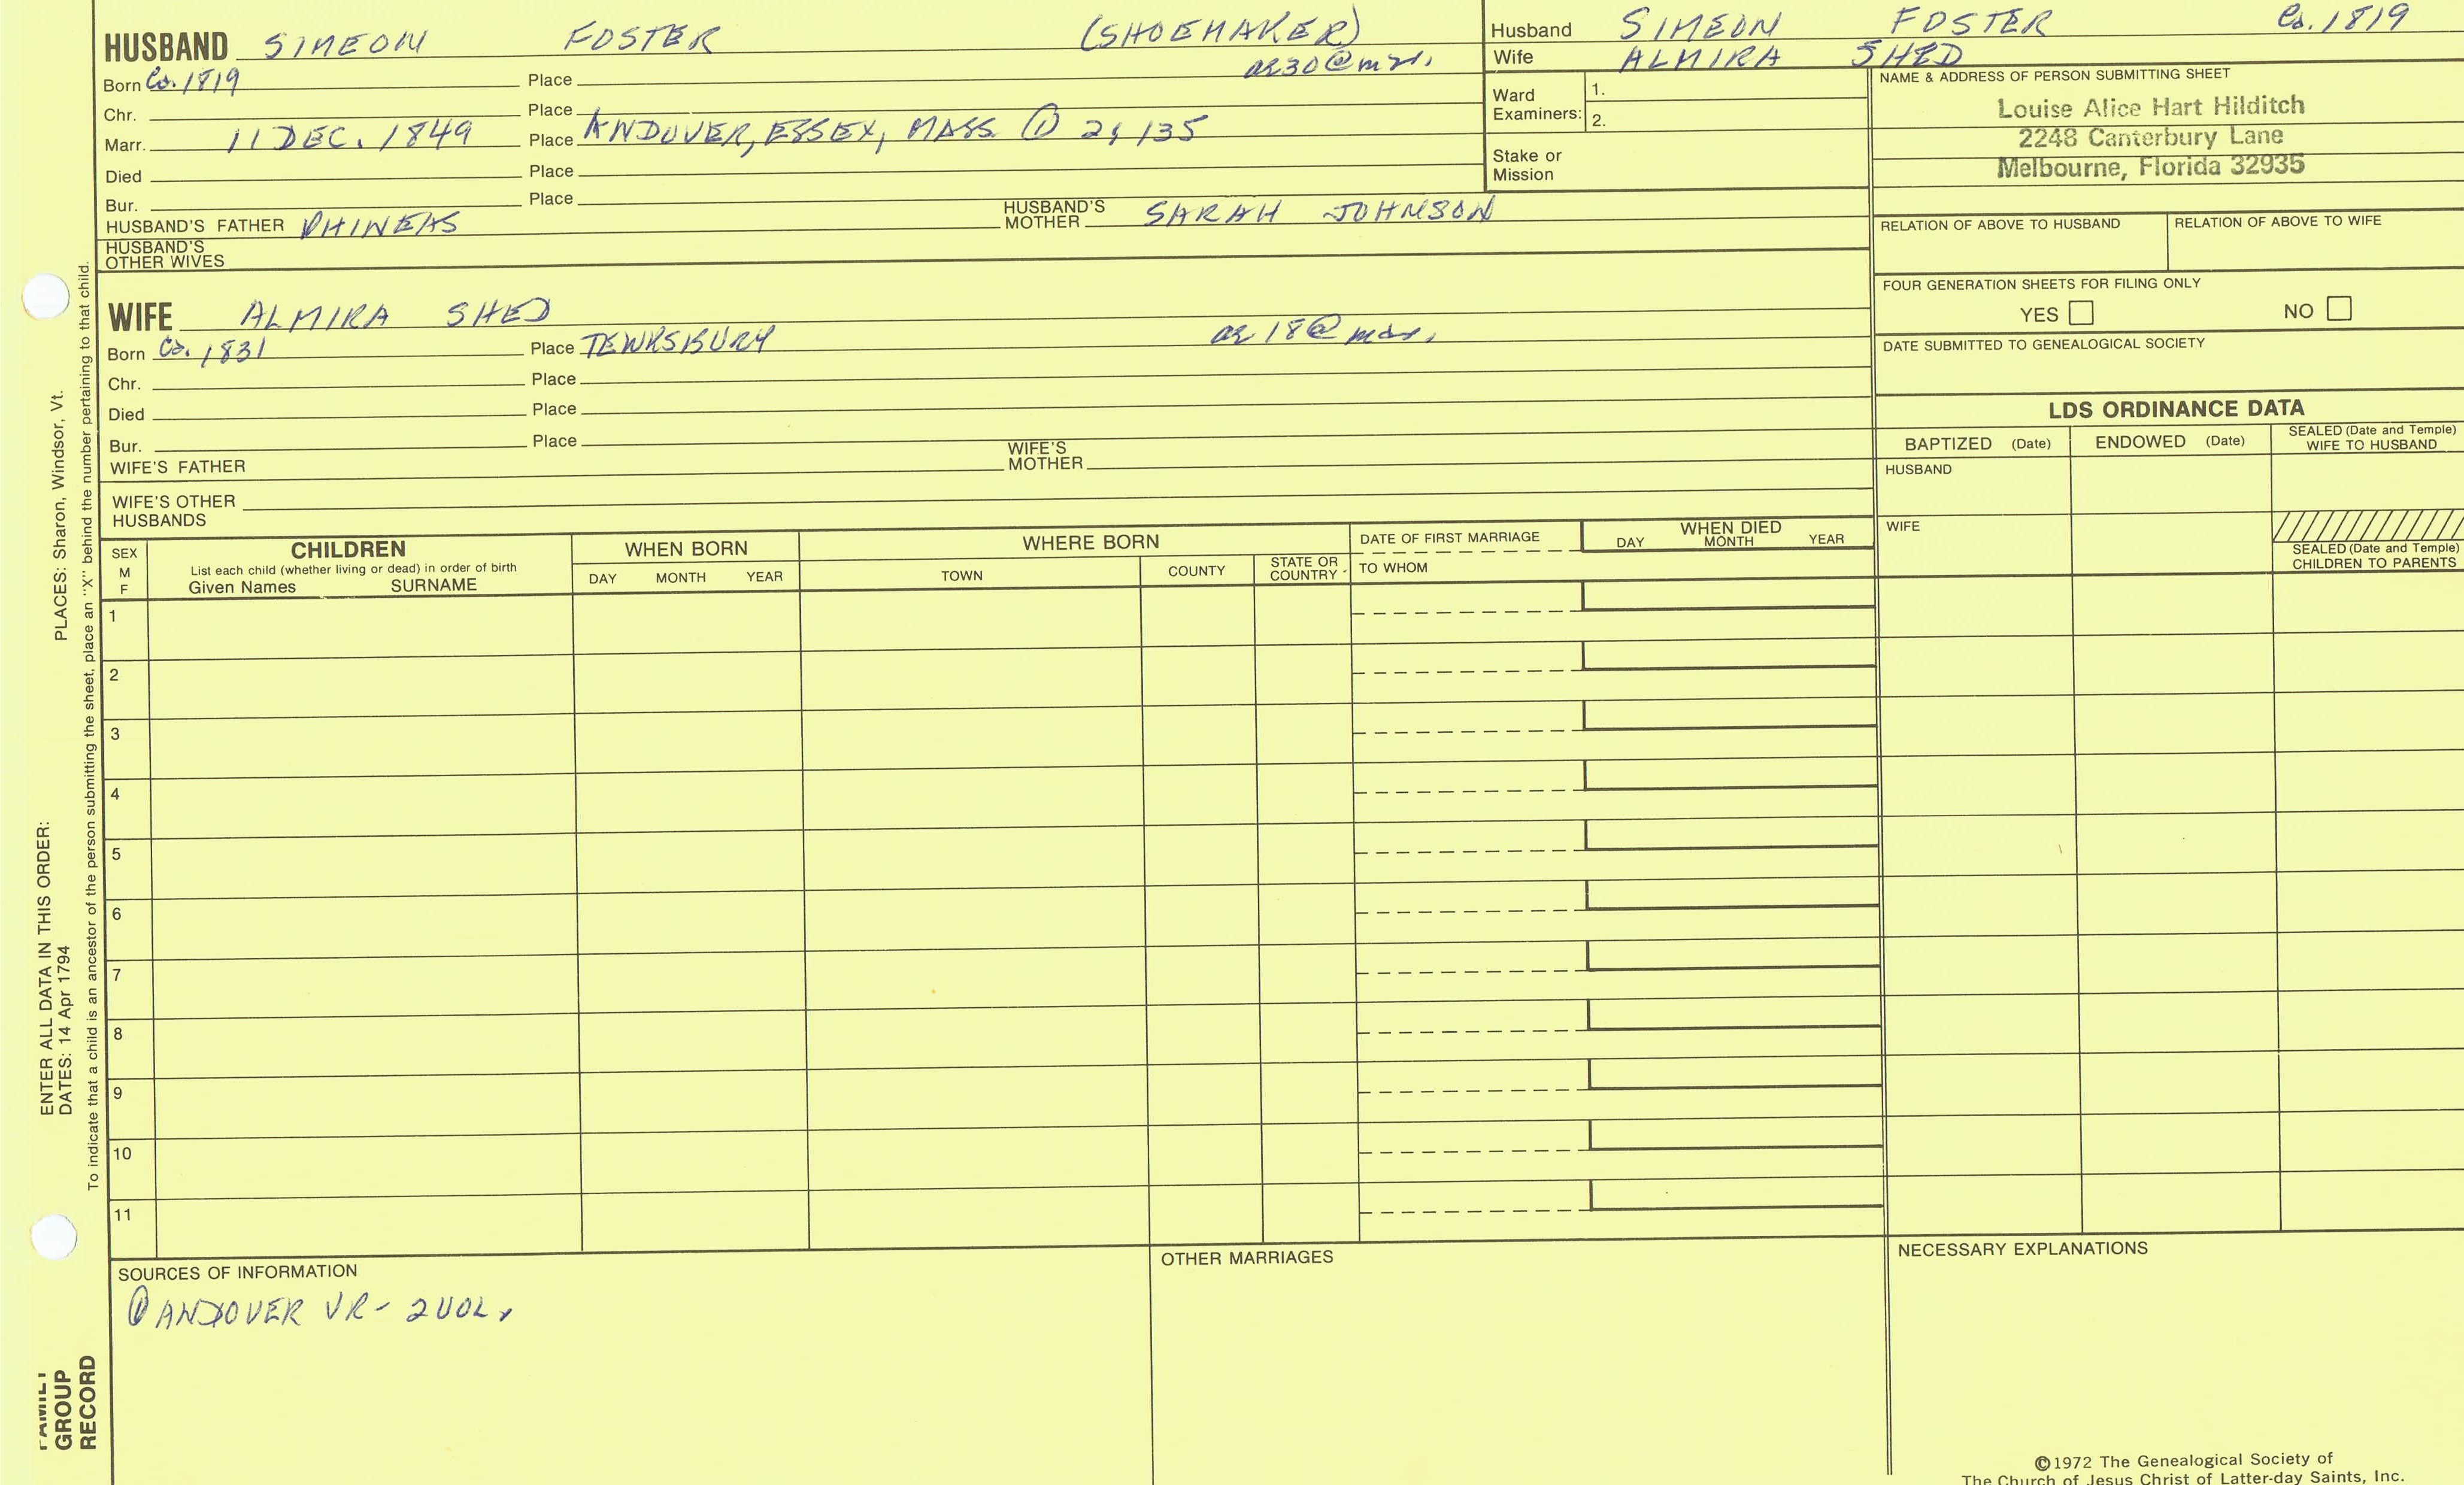 HUSBAND SIMEON FOSTER (SHOEMAKER)
Born Ca. 1819 Place ae 30 @ mar.
Chr. Place
Marr. 11 DEC. 1849 Place ANDOVER, ESSEX, MASS. ① 2; 135
Died Place
Bur. Place
HUSBAND'S FATHER PHINEAS HUSBAND'S MOTHER SARAH JOHNSON
HUSBAND'S OTHER WIVES
Husband SIMEON FOSTER Ca. 1819
Wife ALMIRA SHED
Ward Examiners: 1.
2.
Stake or Mission
NAME & ADDRESS OF PERSON SUBMITTING SHEET
Louise Alice Hart Hilditch
2248 Canterbury Lane
Melbourne, Florida 32935
RELATION OF ABOVE TO HUSBAND RELATION OF ABOVE TO WIFE
FOUR GENERATION SHEETS FOR FILING ONLY
YES NO
DATE SUBMITTED TO GENEALOGICAL SOCIETY
WIFE ALMIRA SHED
Born Ca. 1831 Place TEWKSBURY ae 18 @ mar.
Chr. Place
Died Place
Bur. Place
WIFE'S FATHER WIFE'S MOTHER
WIFE'S OTHER HUSBANDS
LDS ORDINANCE DATA
BAPTIZED (Date) ENDOWED (Date) SEALED (Date and Temple) WIFE TO HUSBAND
HUSBAND
WIFE
SEALED (Date and Temple) CHILDREN TO PARENTS
SEX M F
CHILDREN
List each child (whether living or dead) in order of birth
Given Names SURNAME
WHEN BORN
DAY MONTH YEAR
WHERE BORN
TOWN COUNTY STATE OR COUNTRY
DATE OF FIRST MARRIAGE
TO WHOM
WHEN DIED
DAY MONTH YEAR
1
2
3
4
5
6
7
8
9
10
11
SOURCES OF INFORMATION
① ANDOVER VR - 2 VOL.
OTHER MARRIAGES
NECESSARY EXPLANATIONS
©1972 The Genealogical Society of
The Church of Jesus Christ of Latter-day Saints, Inc.
ENTER ALL DATA IN THIS ORDER:
DATES: 14 Apr 1794 PLACES: Sharon, Windsor, Vt.
To indicate that a child is an ancestor of the person submitting the sheet, place an "X" behind the number pertaining to that child.
FAMILY
GROUP
RECORD